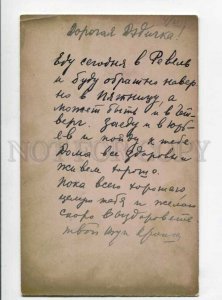 Дорогая Дэдичка!
Еду сегодня в Ревель
и буду обратно навер
но в Пятницу, а
может быть и в Чет
верг. Заеду и в Юрь
ев и поеду к тебе
Дома все здоровы
живем хорошо.
Пока всего хорошаго
целую тебя и желаю
скоро выздороветь
твой